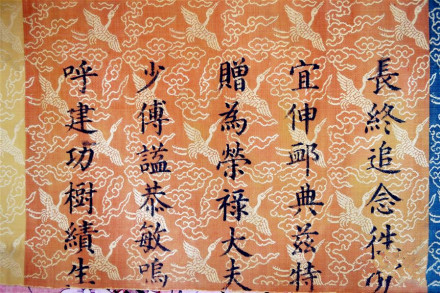 長終追念徃
宜伸卹典兹特
贈為榮祿大夫
少傅謚恭敏嗚
呼建功樹績生